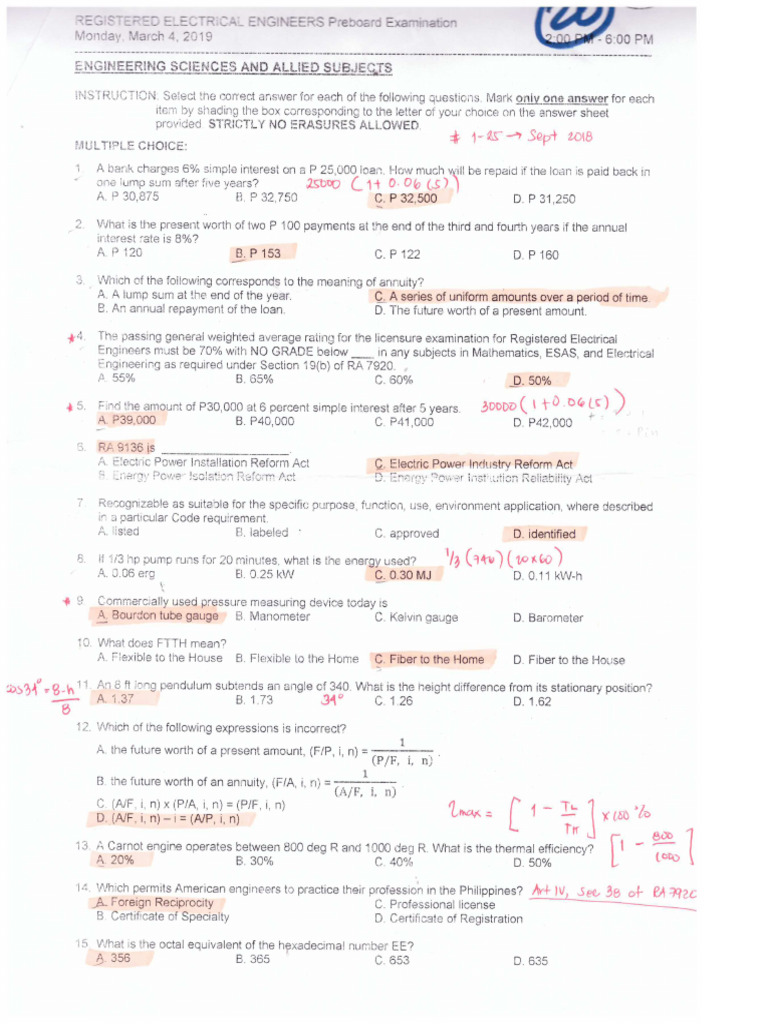 REGISTERED ELECTRICAL ENGINEERS Preboard Examination
Monday, March 4, 2019 2:00 PM - 6:00 PM
ENGINEERING SCIENCES AND ALLIED SUBJECTS
INSTRUCTION: Select the correct answer for each of the following questions. Mark only one answer for each
item by shading the box corresponding to the letter of your choice on the answer sheet
provided. STRICTLY NO ERASURES ALLOWED.
# 1-25 → Sept 2018
MULTIPLE CHOICE:
1. A bank charges 6% simple interest on a P 25,000 loan. How much will be repaid if the loan is paid back in
one lump sum after five years? 25000 (1+ 0.06 (5))
A. P 30,875 B. P 32,750 C. P 32,500 D. P 31,250
2. What is the present worth of two P 100 payments at the end of the third and fourth years if the annual
interest rate is 8%?
A. P 120 B. P 153 C. P 122 D. P 160
3. Which of the following corresponds to the meaning of annuity?
A. A lump sum at the end of the year. C. A series of uniform amounts over a period of time.
B. An annual repayment of the loan. D. The future worth of a present amount.
* 4. The passing general weighted average rating for the licensure examination for Registered Electrical
Engineers must be 70% with NO GRADE below ____ in any subjects in Mathematics, ESAS, and Electrical
Engineering as required under Section 19(b) of RA 7920.
A. 55% B. 65% C. 60% D. 50%
* 5. Find the amount of P30,000 at 6 percent simple interest after 5 years. 30000 (1+0.06(5))
A. P39,000 B. P40,000 C. P41,000 D. P42,000
6. RA 9136 is ____________________.
A. Electric Power Installation Reform Act C. Electric Power Industry Reform Act
B. Energy Power Isolation Reform Act D. Energy Power Institution Reliability Act
7. Recognizable as suitable for the specific purpose, function, use, environment application, where described
in a particular Code requirement.
A. listed B. labeled C. approved D. identified
8. If 1/3 hp pump runs for 20 minutes, what is the energy used? 1/3 (746) (20x60)
A. 0.06 erg B. 0.25 kW C. 0.30 MJ D. 0.11 kW-h
* 9. Commercially used pressure measuring device today is
A. Bourdon tube gauge B. Manometer C. Kelvin gauge D. Barometer
10. What does FTTH mean?
A. Flexible to the House B. Flexible to the Home C. Fiber to the Home D. Fiber to the House
cos34° = 8-h / 8 11. An 8 ft long pendulum subtends an angle of 340. What is the height difference from its stationary position?
A. 1.37 B. 1.73 34° C. 1.26 D. 1.62
12. Which of the following expressions is incorrect?
A. the future worth of a present amount, (F/P, i, n) = 1 / (P/F, i, n) .
B. the future worth of an annuity, (F/A, i, n) = 1 / (A/F, i, n) .
C. (A/F, i, n) x (P/A, i, n) = (P/F, i, n)
D. (A/F, i, n) – i = (A/P, i, n) ηmax = [ 1 - TL / TH ] x 100 %
13. A Carnot engine operates between 800 deg R and 1000 deg R. What is the thermal efficiency? [ 1 - 800 / 1000 ]
A. 20% B. 30% C. 40% D. 50%
14. Which permits American engineers to practice their profession in the Philippines? Art IV, Sec 38 of RA 7920
A. Foreign Reciprocity C. Professional license
B. Certificate of Specialty D. Certificate of Registration
15. What is the octal equivalent of the hexadecimal number EE?
A. 356 B. 365 C. 653 D. 635